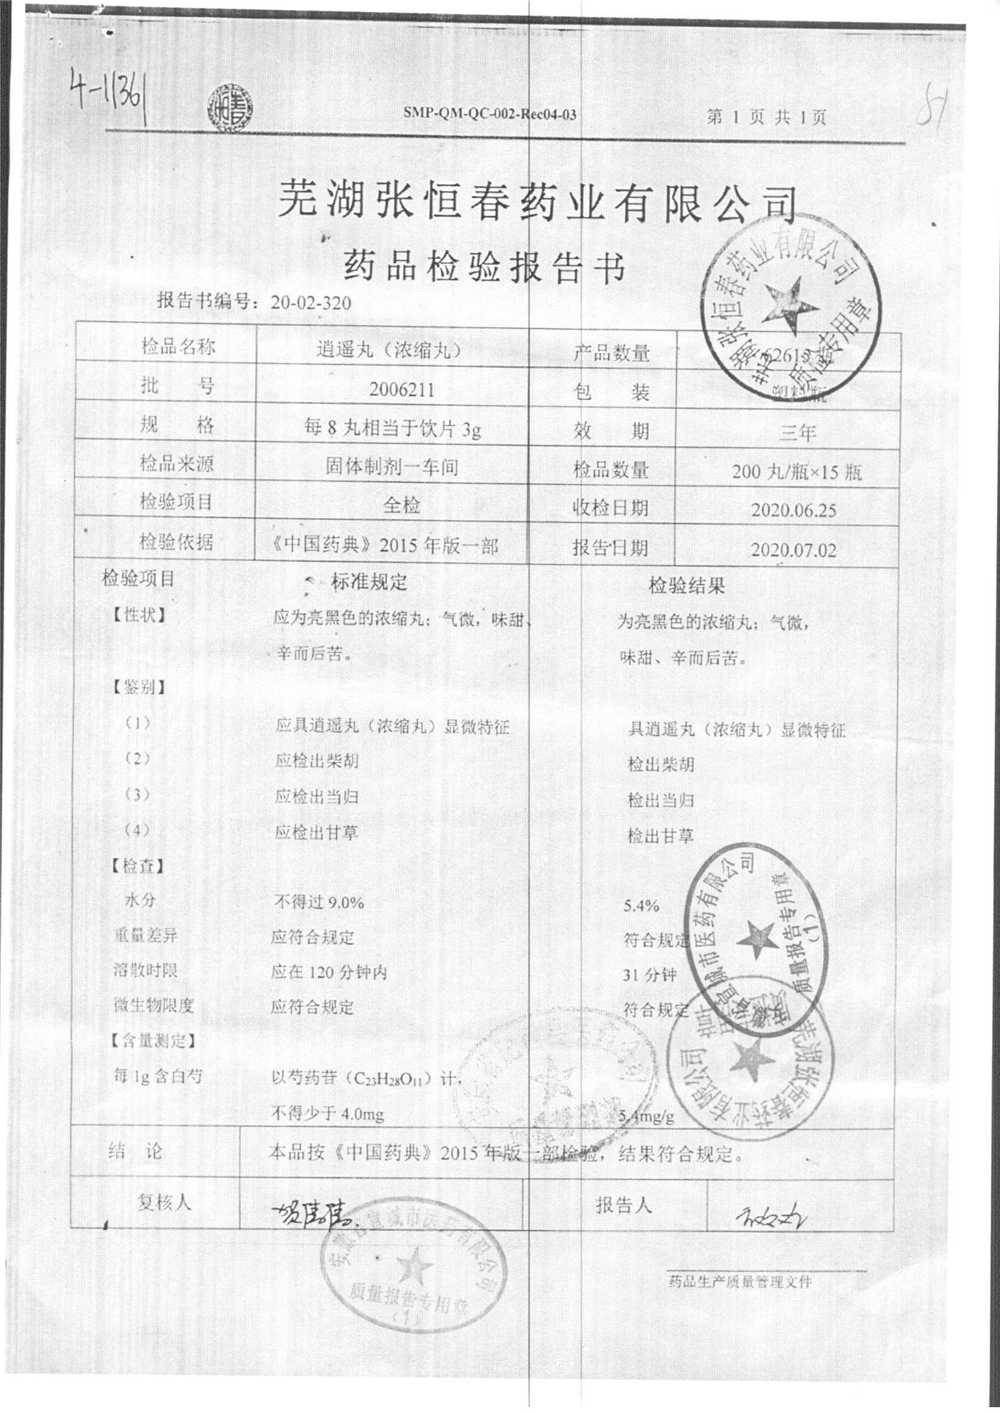 4-11361
SMP-QM-QC-002-Rec04-03
第 1 页 共 1 页
51
芜湖张恒春药业有限公司
药品检验报告书
报告书编号：20-02-320
检品名称 逍遥丸（浓缩丸） 产品数量
批 号 2006211 包 装 塑料瓶
规 格 每 8 丸相当于饮片 3g 效 期 三年
检品来源 固体制剂一车间 检品数量 200 丸/瓶×15 瓶
检验项目 全检 收检日期 2020.06.25
检验依据 《中国药典》2015 年版一部 报告日期 2020.07.02
检验项目 标准规定 检验结果
【性状】 应为亮黑色的浓缩丸；气微，味甜、 为亮黑色的浓缩丸；气微，
辛而后苦。 味甜、辛而后苦。
【鉴别】
（1） 应具逍遥丸（浓缩丸）显微特征 具逍遥丸（浓缩丸）显微特征
（2） 应检出柴胡 检出柴胡
（3） 应检出当归 检出当归
（4） 应检出甘草 检出甘草
【检查】
水分 不得过 9.0% 5.4%
重量差异 应符合规定 符合规定
溶散时限 应在 120 分钟内 31 分钟
微生物限度 应符合规定 符合规定
【含量测定】
每 1g 含白芍 以芍药苷（C23H28O11）计，
不得少于 4.0mg 5.4mg/g
结 论 本品按《中国药典》2015 年版一部检验，结果符合规定。
复核人 报告人
药品生产质量管理文件
芜湖张恒春药业有限公司
质检专用章
安徽省宣城市医药有限公司
质量报告专用章
（1）
芜湖张恒春药业有限公司
安徽省宣城市医药有限公司
质量报告专用章
（1）